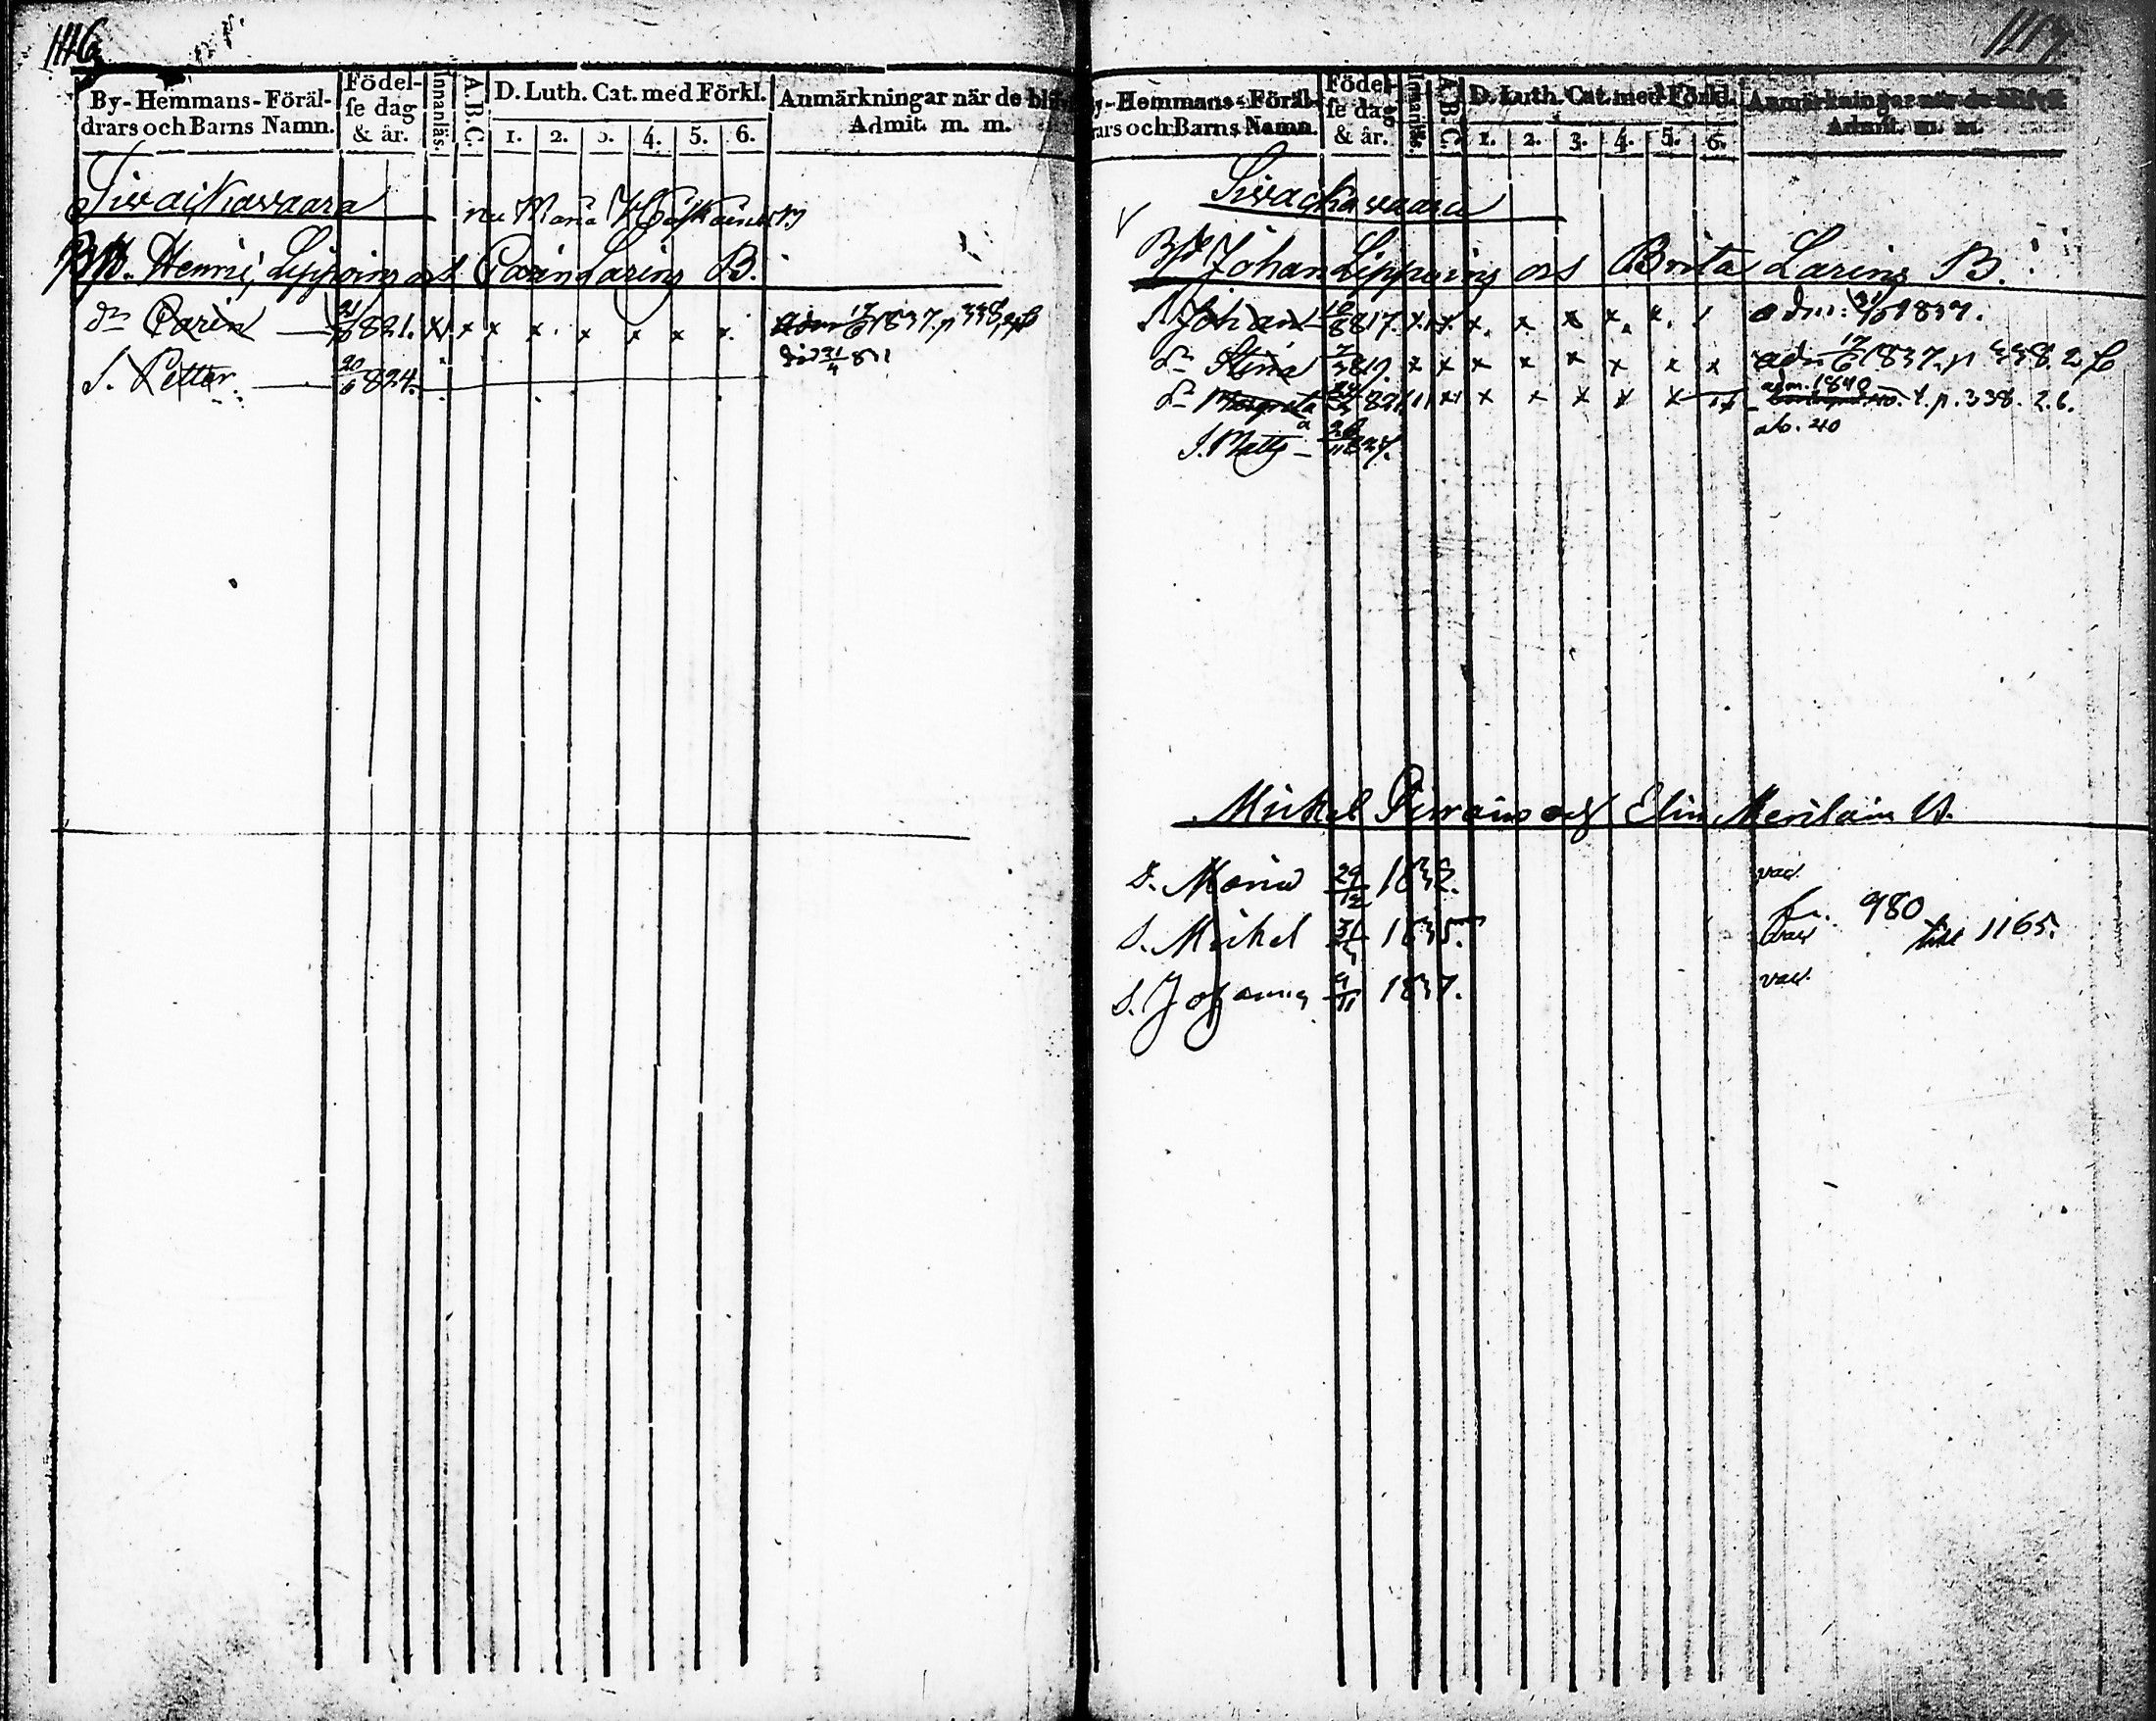 1116
By-Hemmans-Föräl-
drars och Barns Namn.
Födel-
se dag
& år.
Innanläs.
A.B.C.
D. Luth. Cat. med Förkl.
1. 2. 3. 4. 5. 6.
Anmärkningar när de blif
Admit. m. m.
Sivajkavaara
nu Maria
Bp. Henric Lippoin och Carin Larin B.
dr Carin 21/6 821. x x x x x x x x adm 17/6 1837. p 338. 2
S. Petter. 20/6 824.
1117
By-Hemmans-Föräl-
drars och Barns Namn.
Födel-
se dag
& år.
Innanläs.
A.B.C.
D. Luth. Cat. med Förkl.
1. 2. 3. 4. 5. 6.
Anmärkningar när de blifvit
Admit. m. m.
Sivackavaara
Bp Johan Lippoing och Brita Laring B.
S. Johan 18/8 817. x x x x x x x adm: 1837.
dr Stina 819. x x x x x x x x adm 17/6 1837. p 338. 2
dr Margreta 821. x x x x x x adm. 1840 t. p. 338. 2.
ab. 40
S. Matts 26/11 827.
Mickel Pirrainen och Elin Merilain
D. Maria 29/12 1832. vac.
S. Mickel 1835. vac fr. 980 till 1165.
S. Johannes 9/11 1837. vac.